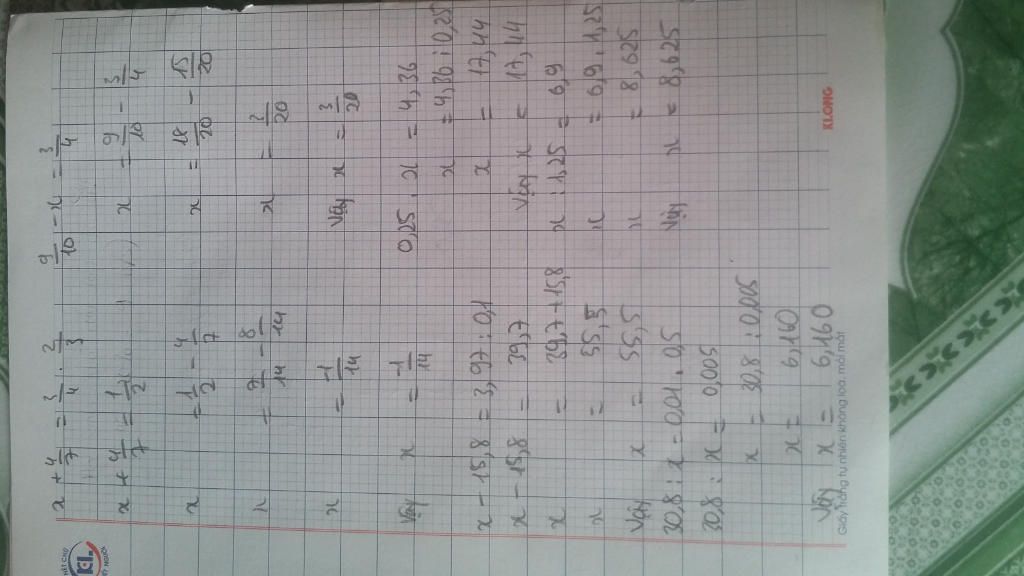 x + 4/7 = 3/4 . 2/3
x + 4/7 = 1/2
x = 1/2 - 4/7
x = 7/14 - 8/14
x = -1/14
Vậy x = -1/14
x - 15,8 = 3,97 : 0,1
x - 15,8 = 39,7
x = 39,7 + 15,8
x = 55,5
Vậy x = 55,5
30,8 : x = 0,01 . 0,5
30,8 : x = 0,005
x = 30,8 : 0,005
x = 6,160
Vậy x = 6,160
9/10 - x = 3/4
x = 9/10 - 3/4
x = 18/20 - 15/20
x = 3/20
Vậy x = 3/20
0,25 . x = 4,36
x = 4,36 : 0,25
x = 17,44
Vậy x = 17,44
x : 1,25 = 6,9
x = 6,9 . 1,25
x = 8,625
Vậy x = 8,625
KL
Giấy trắng tự nhiên không lóa, mỏi mắt
KLONG